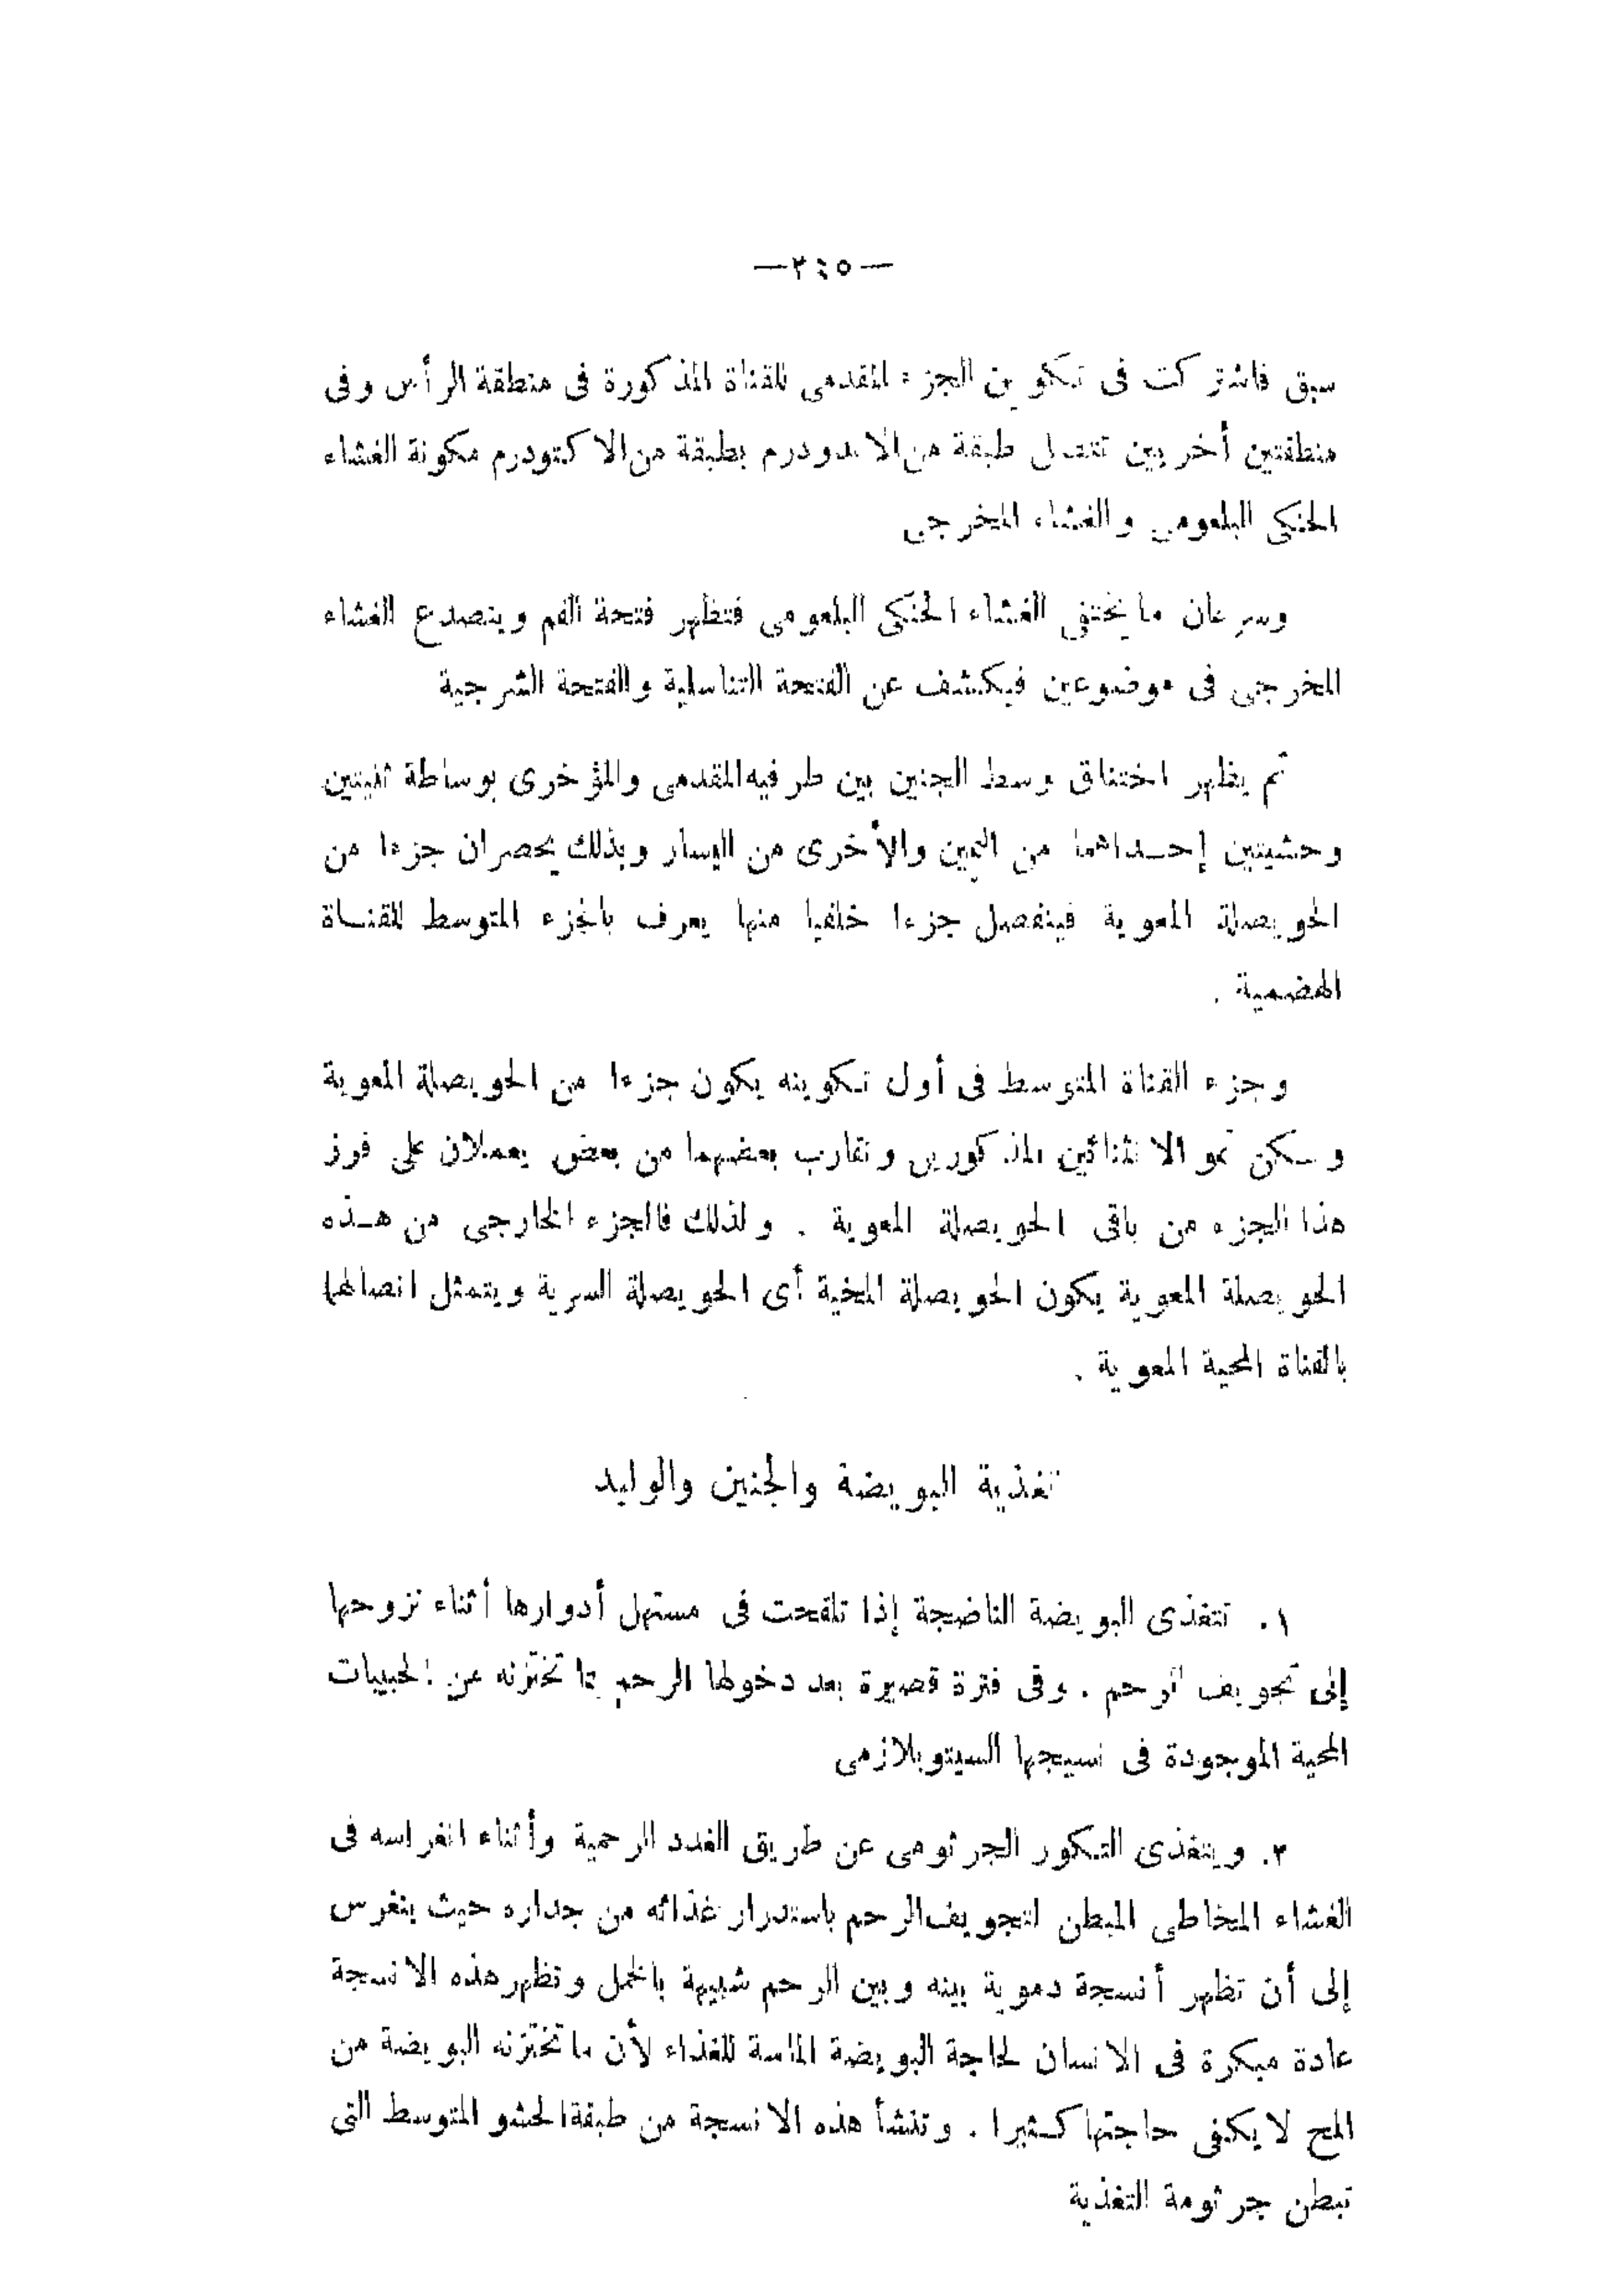 —٢٤٥—
سبق فاشتركت فى تكوين الجزء المقدمى للقناة المذكورة فى منطقة الرأس وفى
منطقتين أخريين تتصل طبقة من الاندودرم بطبقة من الاكتودرم مكونة الغشاء
الحنكى البلعومى والغشاء المخرجى
وسرعان ما يختفى الغشاء الحنكى البلعومى فتظهر فتحة الفم ويتصدع الغشاء
المخرجى فى موضوعين فيكشف عن الفتحة التناسلية والفتحة الشرجية
ثم يظهر اختناق وسط الجنين بين طرفيه المقدمى والمؤخرى بوساطة ثنيتين
وحشيتين إحداهما من اليمين والأخرى من اليسار وبذلك يحصران جزءا من
الحويصلة المعوية فينفصل جزءا خلفيا منها يعرف بالجزء المتوسط للقناة
الهضمية .
وجزء القناة المتوسط فى أول تكوينه يكون جزءا من الحويصلة المعوية
ولكن نمو الانثنائين المذكورين وتقارب بعضهما من بعض يعملان على فرز
هذا الجزء من باقى الحويصلة المعوية . ولذلك فالجزء الخارجى من هذه
الحويصلة المعوية يكون الحويصلة المخية أى الحويصلة السرية ويتمثل اتصالها
بالقناة المحية المعوية .
تغذية البويضة والجنين والوليد
١. تتغذى البويضة الناضجة إذا تلقحت فى مستهل أدوارها أثناء نزوحها
إلى تجويف الرحم . وفى فترة قصيرة بعد دخولها الرحم بما تختزنه من الحبيبات
المحية الموجودة فى نسيجها السيتوبلازمى
٢. ويتغذى التكور الجرثومى عن طريق الغدد الرحمية وأثناء انغراسه فى
الغشاء المخاطى المبطن لتجويف الرحم باستدرار غذائه من جداره حيث ينغرس
إلى أن تظهر أنسجة دموية بينه وبين الرحم شبيهة بالخمل وتظهر هذه الانسجة
عادة مبكرة فى الانسان لحاجة البويضة الماسة للغذاء لأن ما تختزنه البويضة من
المح لا يكفى حاجتها كثيرا . وتنشأ هذه الانسجة من طبقة الحشو المتوسط التى
تبطن جرثومة التغذية